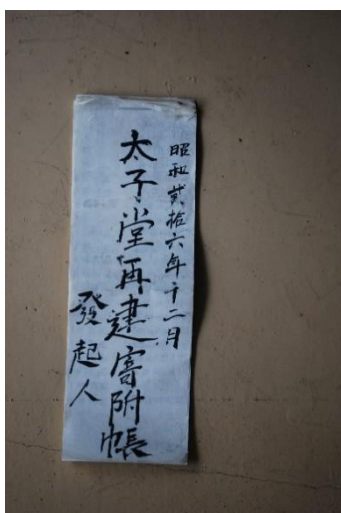 昭和貳拾六年十二月
太子堂再建寄附帳
發起人